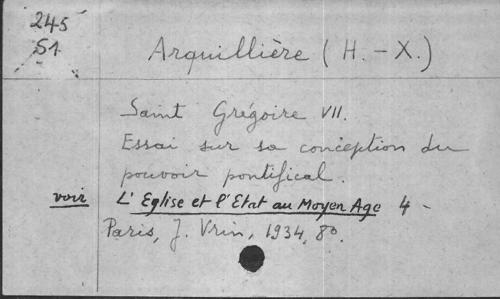 245
S1
Arquillière (H.-X.)
Saint Grégoire VII.
Essai sur sa conception du
pouvoir pontifical.
voir L'Eglise et l'Etat au Moyen Age 4 -
Paris, J. Vrin, 1934, 8º.